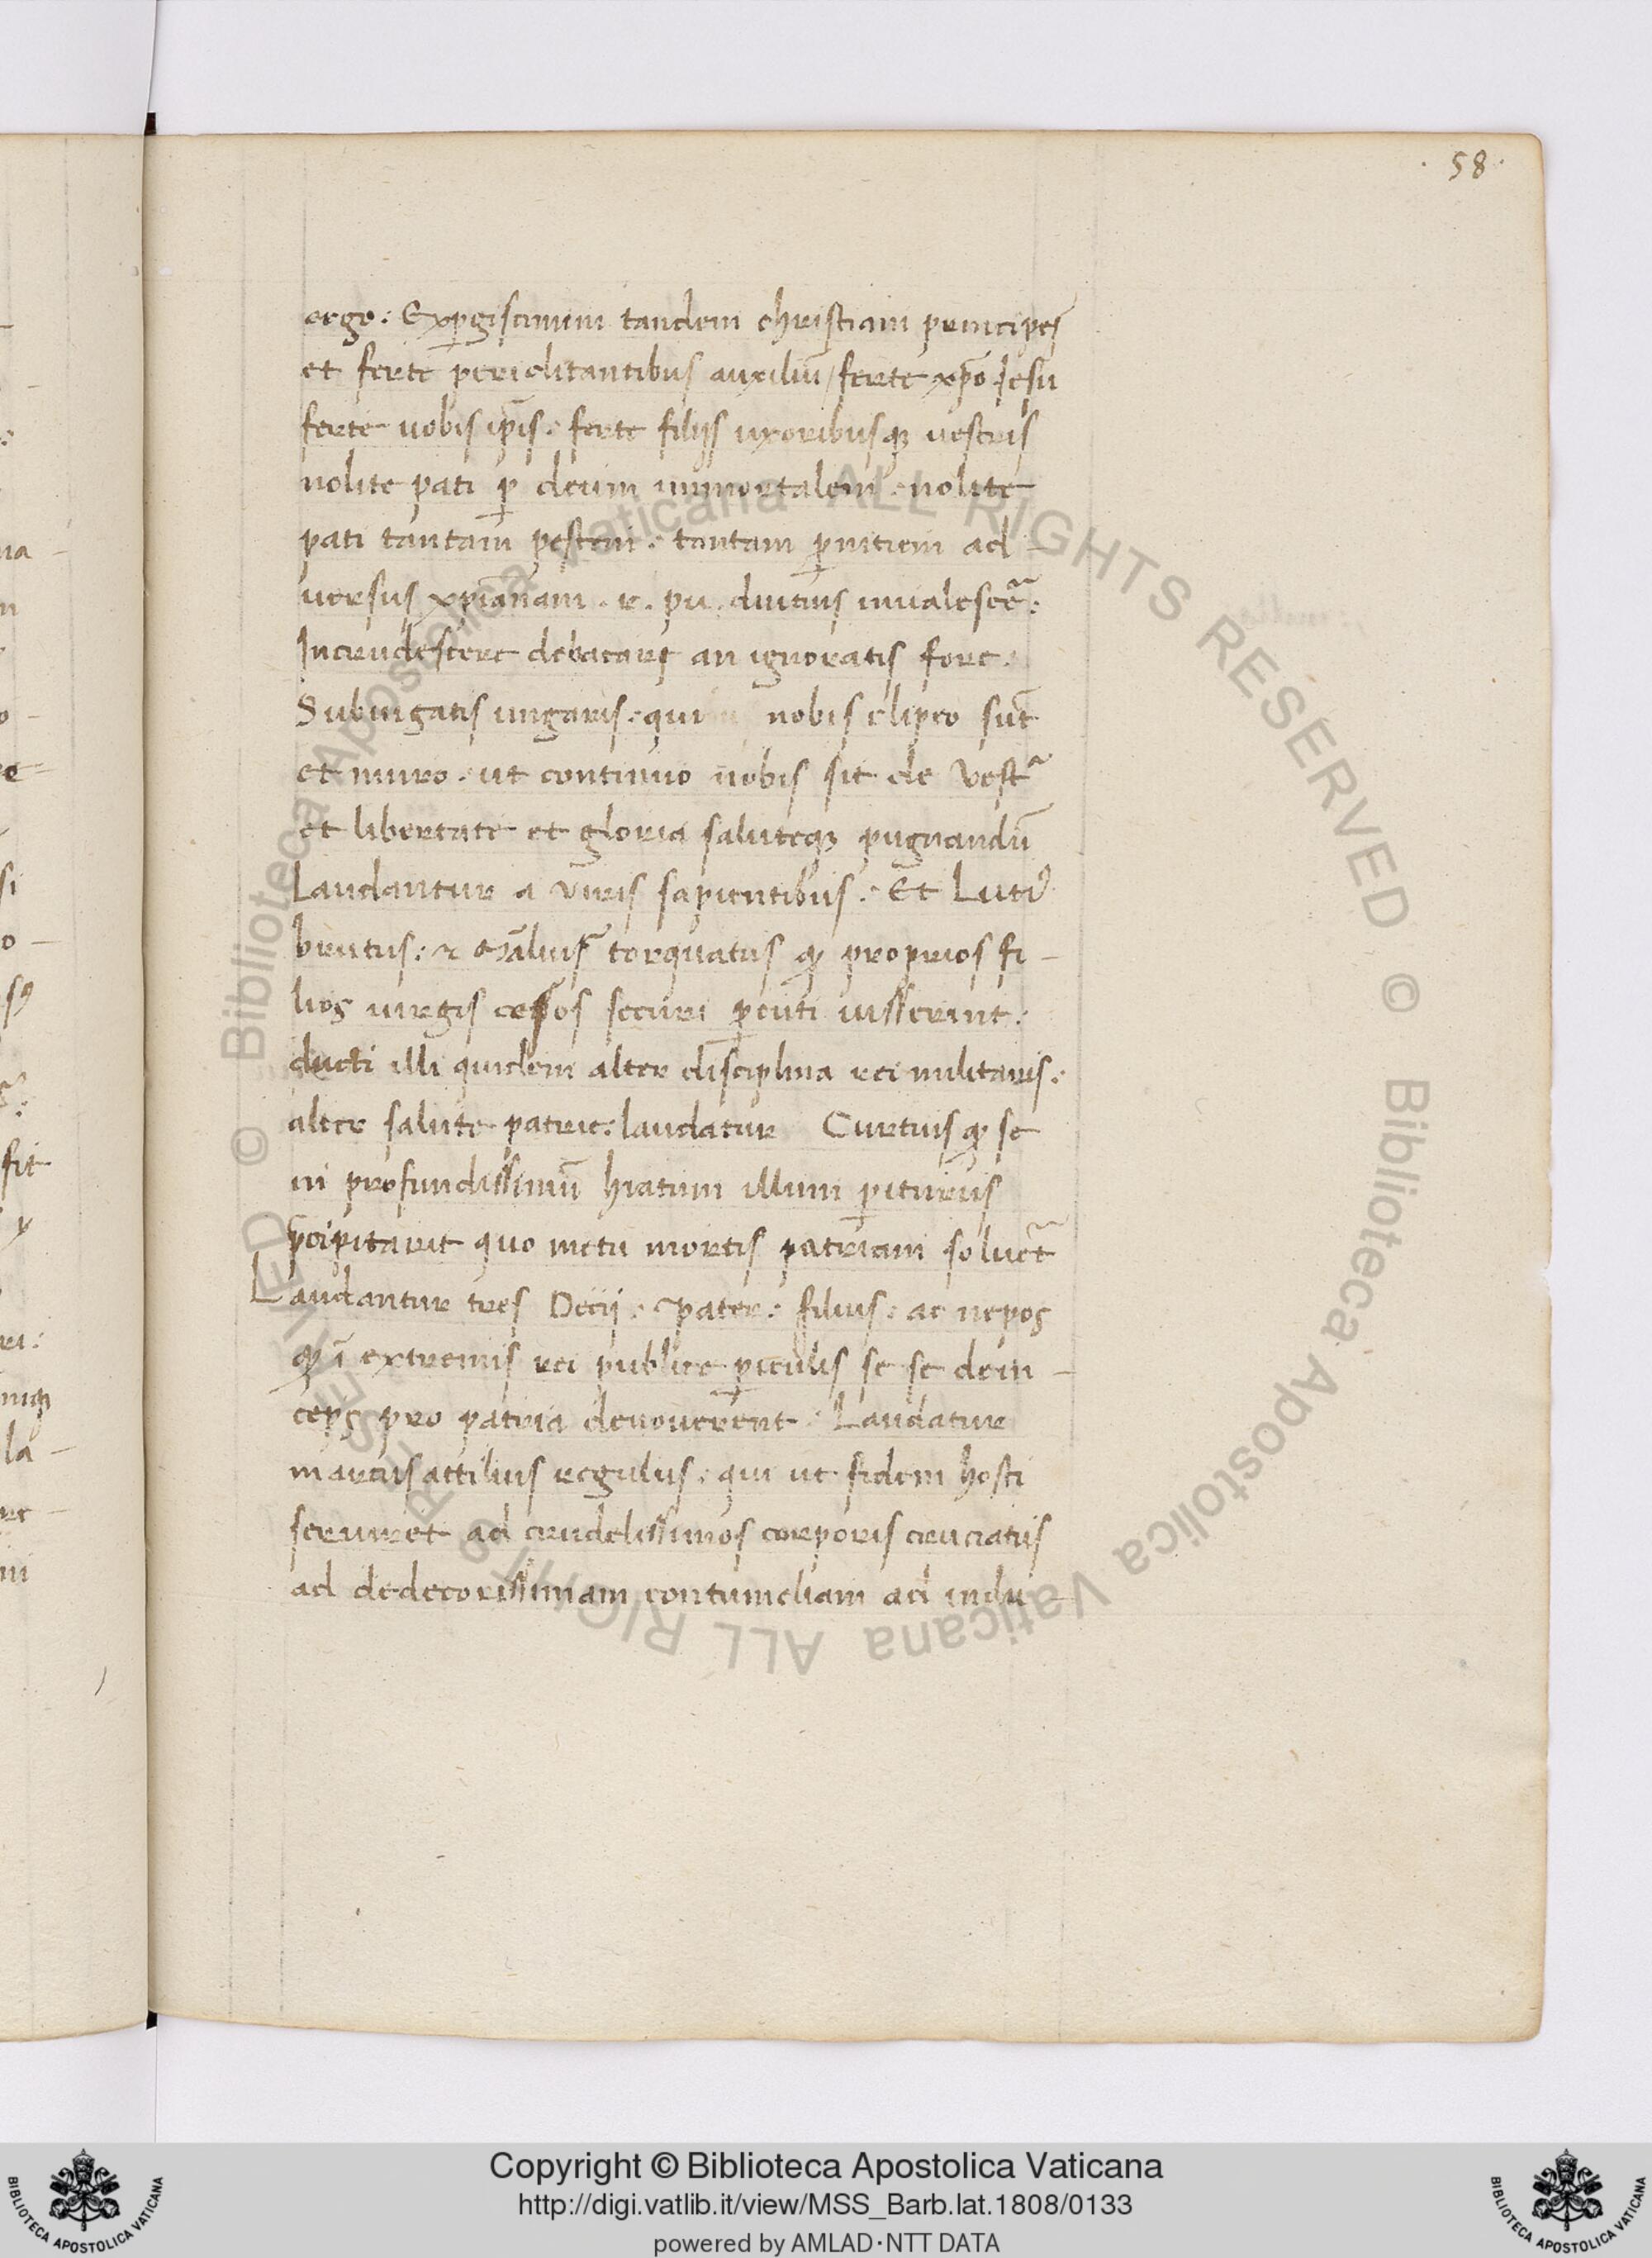 58
ergo: Expꝑgiscimini tandem christiani principes
et ferte periclitantibus auxiliū / ferte xp̄o Iesu
ferte uobis ip̄is: ferte filijs uxoribusqꝫ uestris
nolite pati ꝑ deum immortalem: nolite
pati tantam pestem: tantam ꝑnitiem ad-
uersus xp̄ianam . r . pu . diutius inualescē:
Incrudescere debacari an ignoratis fore:
Subiugatis ungaris: qui nobis clipeo sūt
et muro: ut continuo uobis sit de vest̄
et libertate et gloria saluteqꝫ pugnandū
Laudantur a viris sapientibus: Et Luti9
brutus: & Māliuſ torquatus qꝫ proprios fi-
lios uirgis cesos securi ꝑcuti iusserint:
ducti illi quidem alter disciplina rei militaris:
alter salute patrie: laudatur Curtius qꝫ se
in profundissimū hiatum illum ꝑiturus
p̄cipitarit quo metu mortis patriam soluēt
Laudantur tres Decij: pater: filius: ac nepos
qꝫ ī extremis rei publice ꝑiculis se se dein-
ceps pro patria deuouerent: Laudatur
marcus attilius regulus: qui ut fidem hosti
seruaret ad crudelissimos corporis cruciatus
ad dedecorissimam contumeliam ad indu-
© Biblioteca Apostolica Vaticana ALL RIGHTS RESERVED
© Biblioteca Apostolica Vaticana ALL RIGHTS RESERVED
Copyright © Biblioteca Apostolica Vaticana
http://digi.vatlib.it/view/MSS_Barb.lat.1808/0133
powered by AMLAD·NTT DATA
BIBLIOTECA APOSTOLICA VATICANA
BIBLIOTECA APOSTOLICA VATICANA